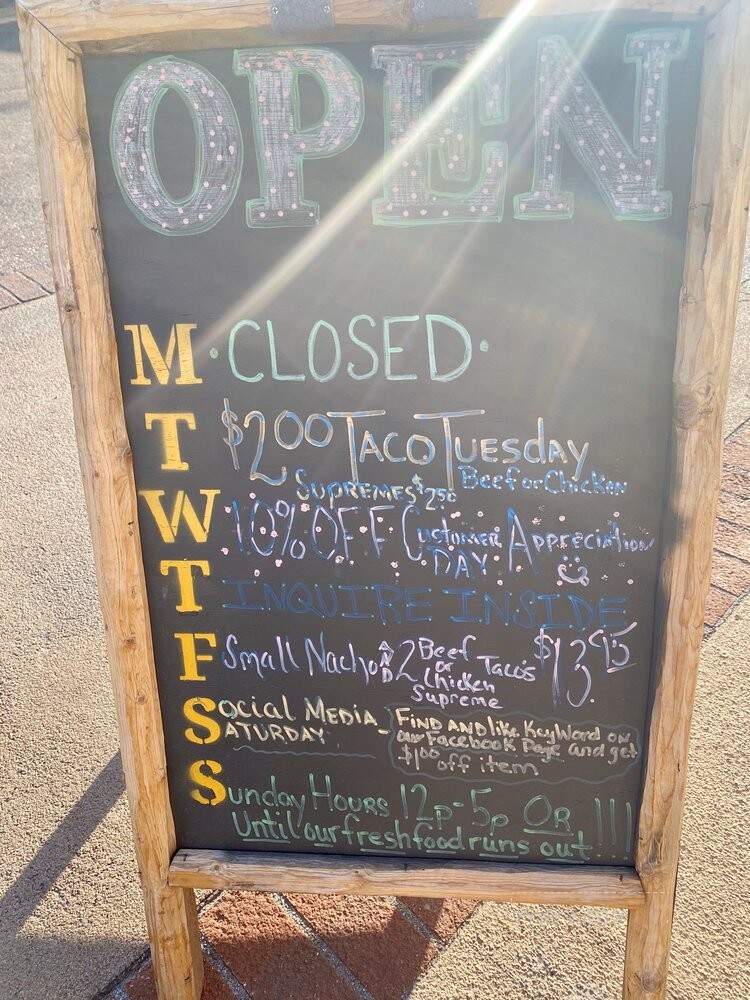 OPEN
M · CLOSED ·
T $2.00 TACO TUESDAY
SUPREMES $2.50 Beef or Chicken
W 10% OFF CUSTOMER APPRECIATION
DAY
T INQUIRE INSIDE
F Small Nacho AND 2 Beef or Chicken Supreme Tacos $13.95
Social MEDIA
SATURDAY - FIND AND like KeyWord on
our Facebook Page and get
$1.00 off item
Sunday HOURS 12p-5p OR
Until our fresh food runs out!!!